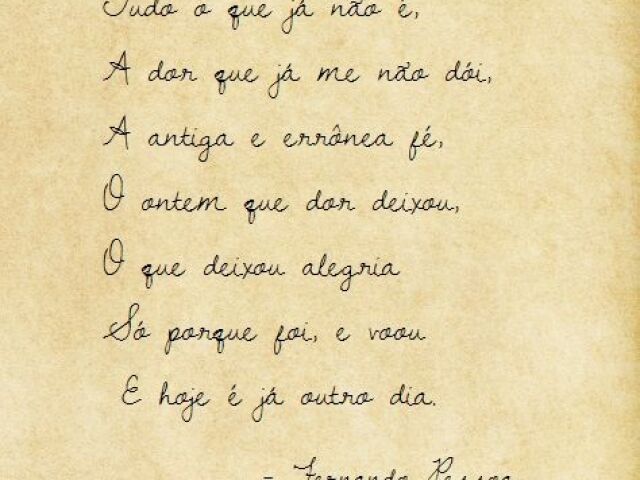 Tudo o que já não é,
A dor que já me não dói,
A antiga e errônea fé,
O ontem que dor deixou,
O que deixou alegria
Só porque foi, e voou
E hoje é já outro dia.
- Fernando Pessoa